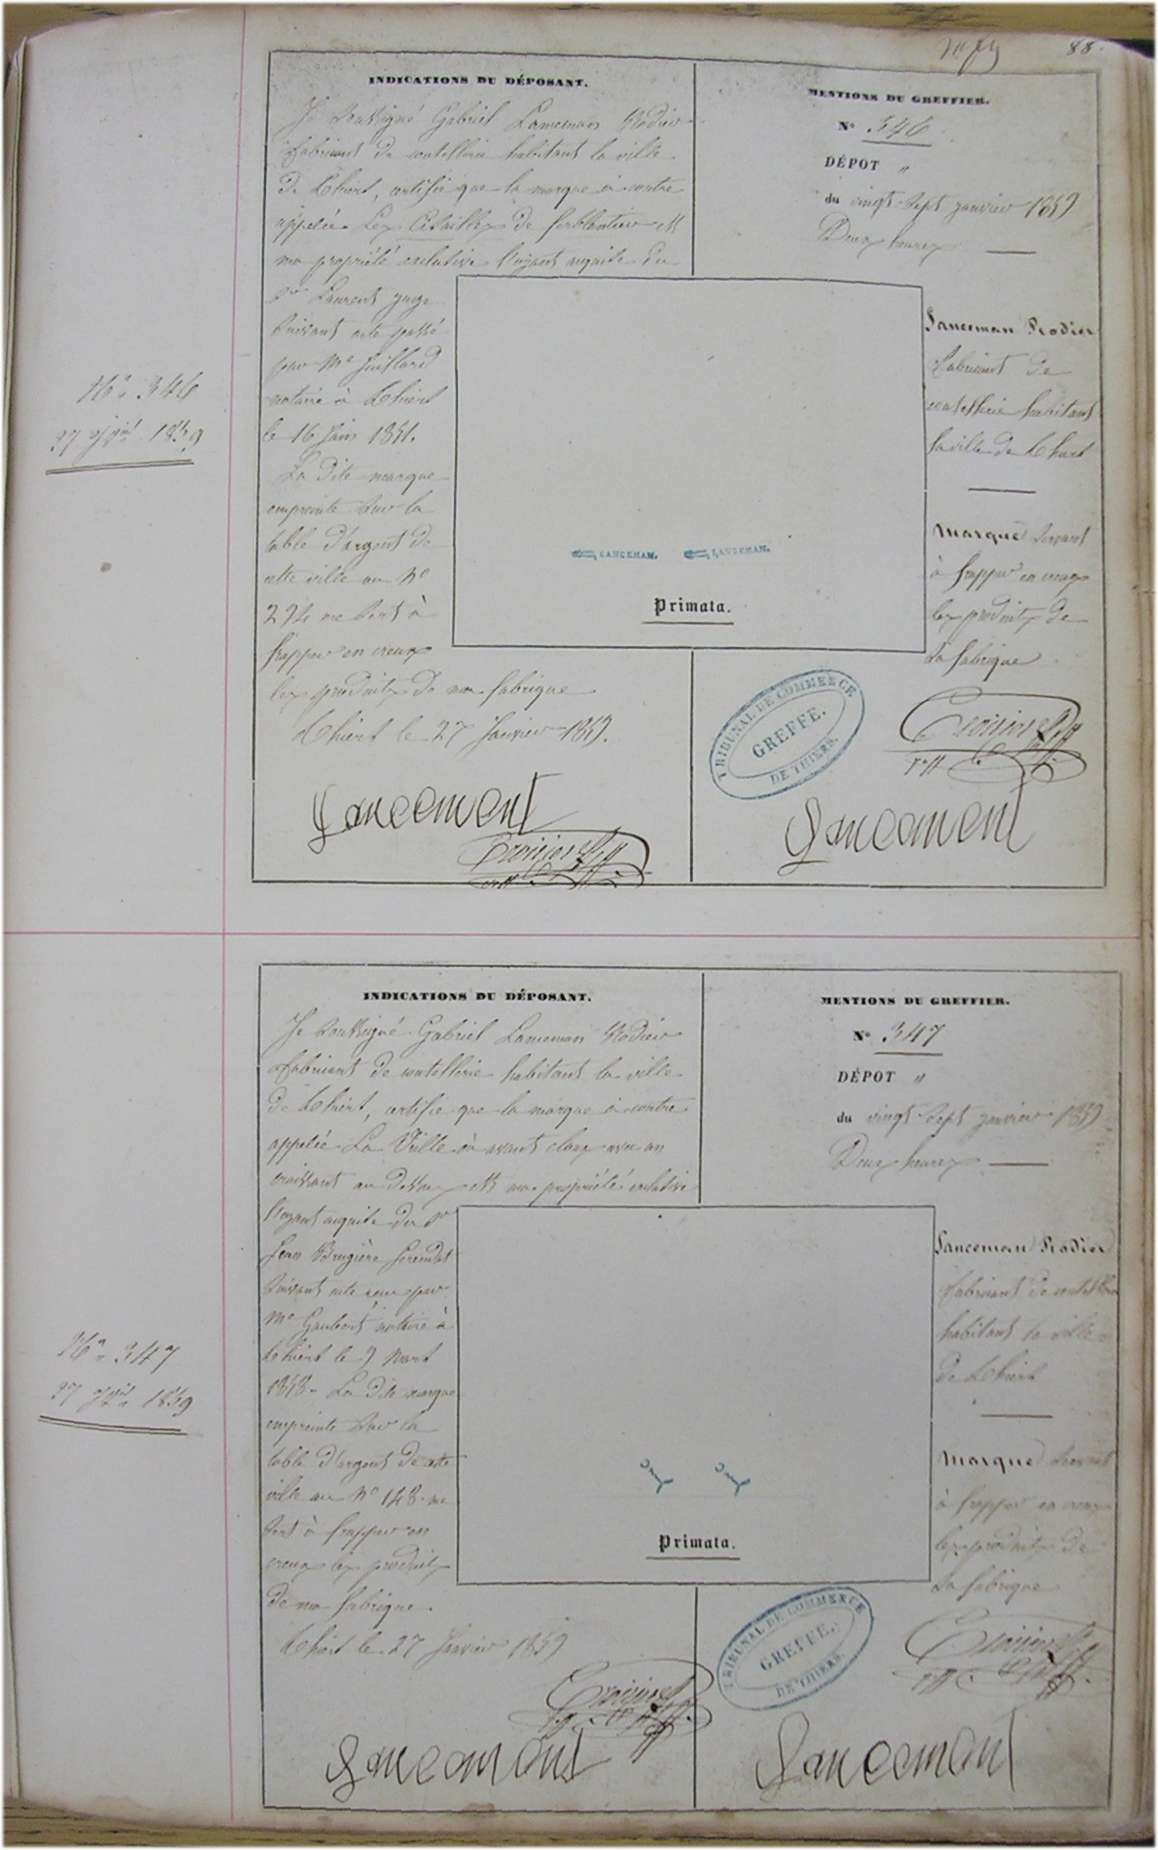 88.
INDICATIONS DU DÉPOSANT.
Je soussigné Gabriel Lanceman Rodier
fabricant de coutellerie habitant la ville
de Thiers, certifie que la marque ci contre
appelée Les Cisailles de ferblantier est
ma propriété exclusive l'ayant acquise du
Sr Laurent
suivant acte passé
par Me
notaire à Thiers
le 16 Juin 1851.
La dite marque
empreinte sur la
table d'argent de
cette ville au No
294 me sert à
frapper en creux
les produits de ma fabrique
Thiers le 27 Janvier 1859.
Lancemant
MENTIONS DU GREFFIER.
No 346
DÉPOT "
du vingt sept janvier 1859
Deux heures
Lanceman Rodier
fabricant de
coutellerie habitant
la ville de Thiers
Marque servant
à frapper en creux
les produits de
sa fabrique
LANCEMAN. LANCEMAN.
Primata.
TRIBUNAL DE COMMERCE
GREFFE.
DE THIERS.
Lancemant
No 346
27 1859
INDICATIONS DU DÉPOSANT.
Je soussigné Gabriel Lanceman Rodier
fabricant de coutellerie habitant la ville
de Thiers, certifie que la marque ci contre
appelée La avec un
croissant au dessus est ma propriété exclusive
l'ayant acquise du Sr
Jean Brugière
suivant acte reçu par
Me notaire à
Thiers le 9 Mars
1858. La dite marque
empreinte sur la
table d'argent de cette
ville au No 148 me
sert à frapper en
creux les produits
de ma fabrique.
Thiers le 27 Janvier 1859
Lancemant
MENTIONS DU GREFFIER.
No 347
DÉPOT "
du vingt sept janvier 1859
Deux heures
Lanceman Rodier
fabricant de coutellerie
habitant la ville
de Thiers
Marque servant
à frapper en creux
les produits de
sa fabrique
Primata.
TRIBUNAL DE COMMERCE
GREFFE.
DE THIERS.
Lancemant
No 347
27 1859